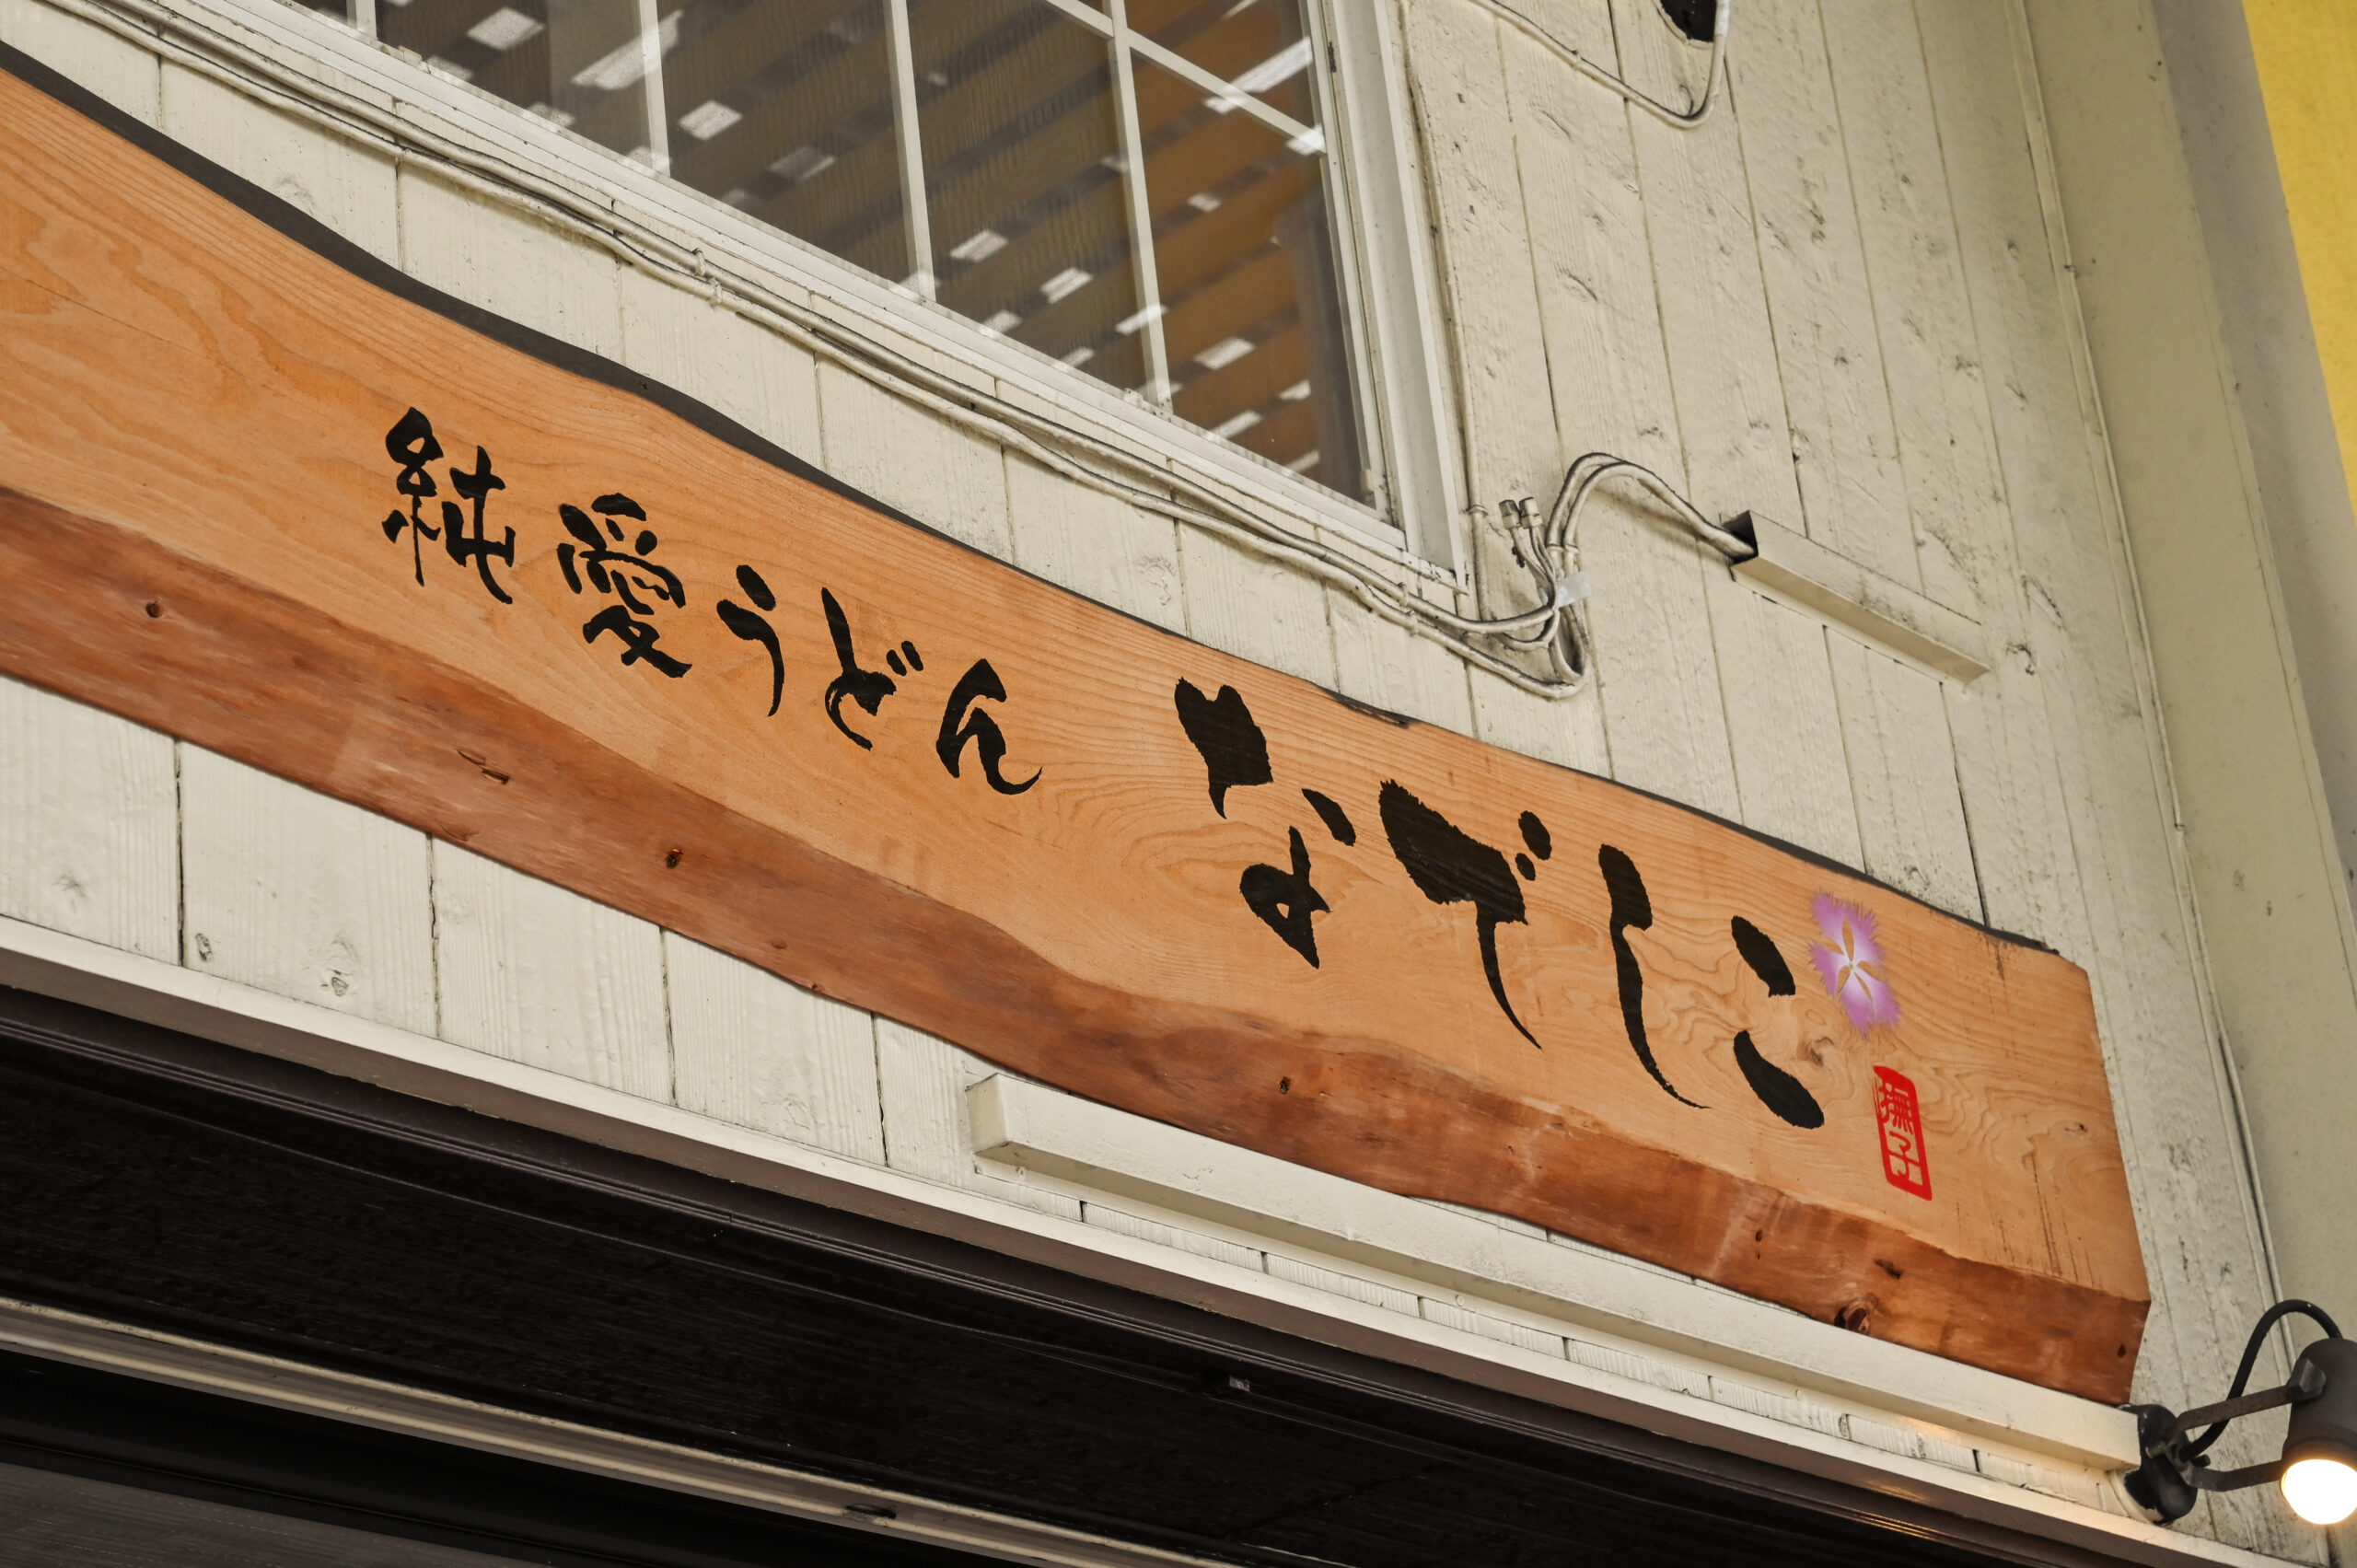 純愛うどん なでしこ
撫子